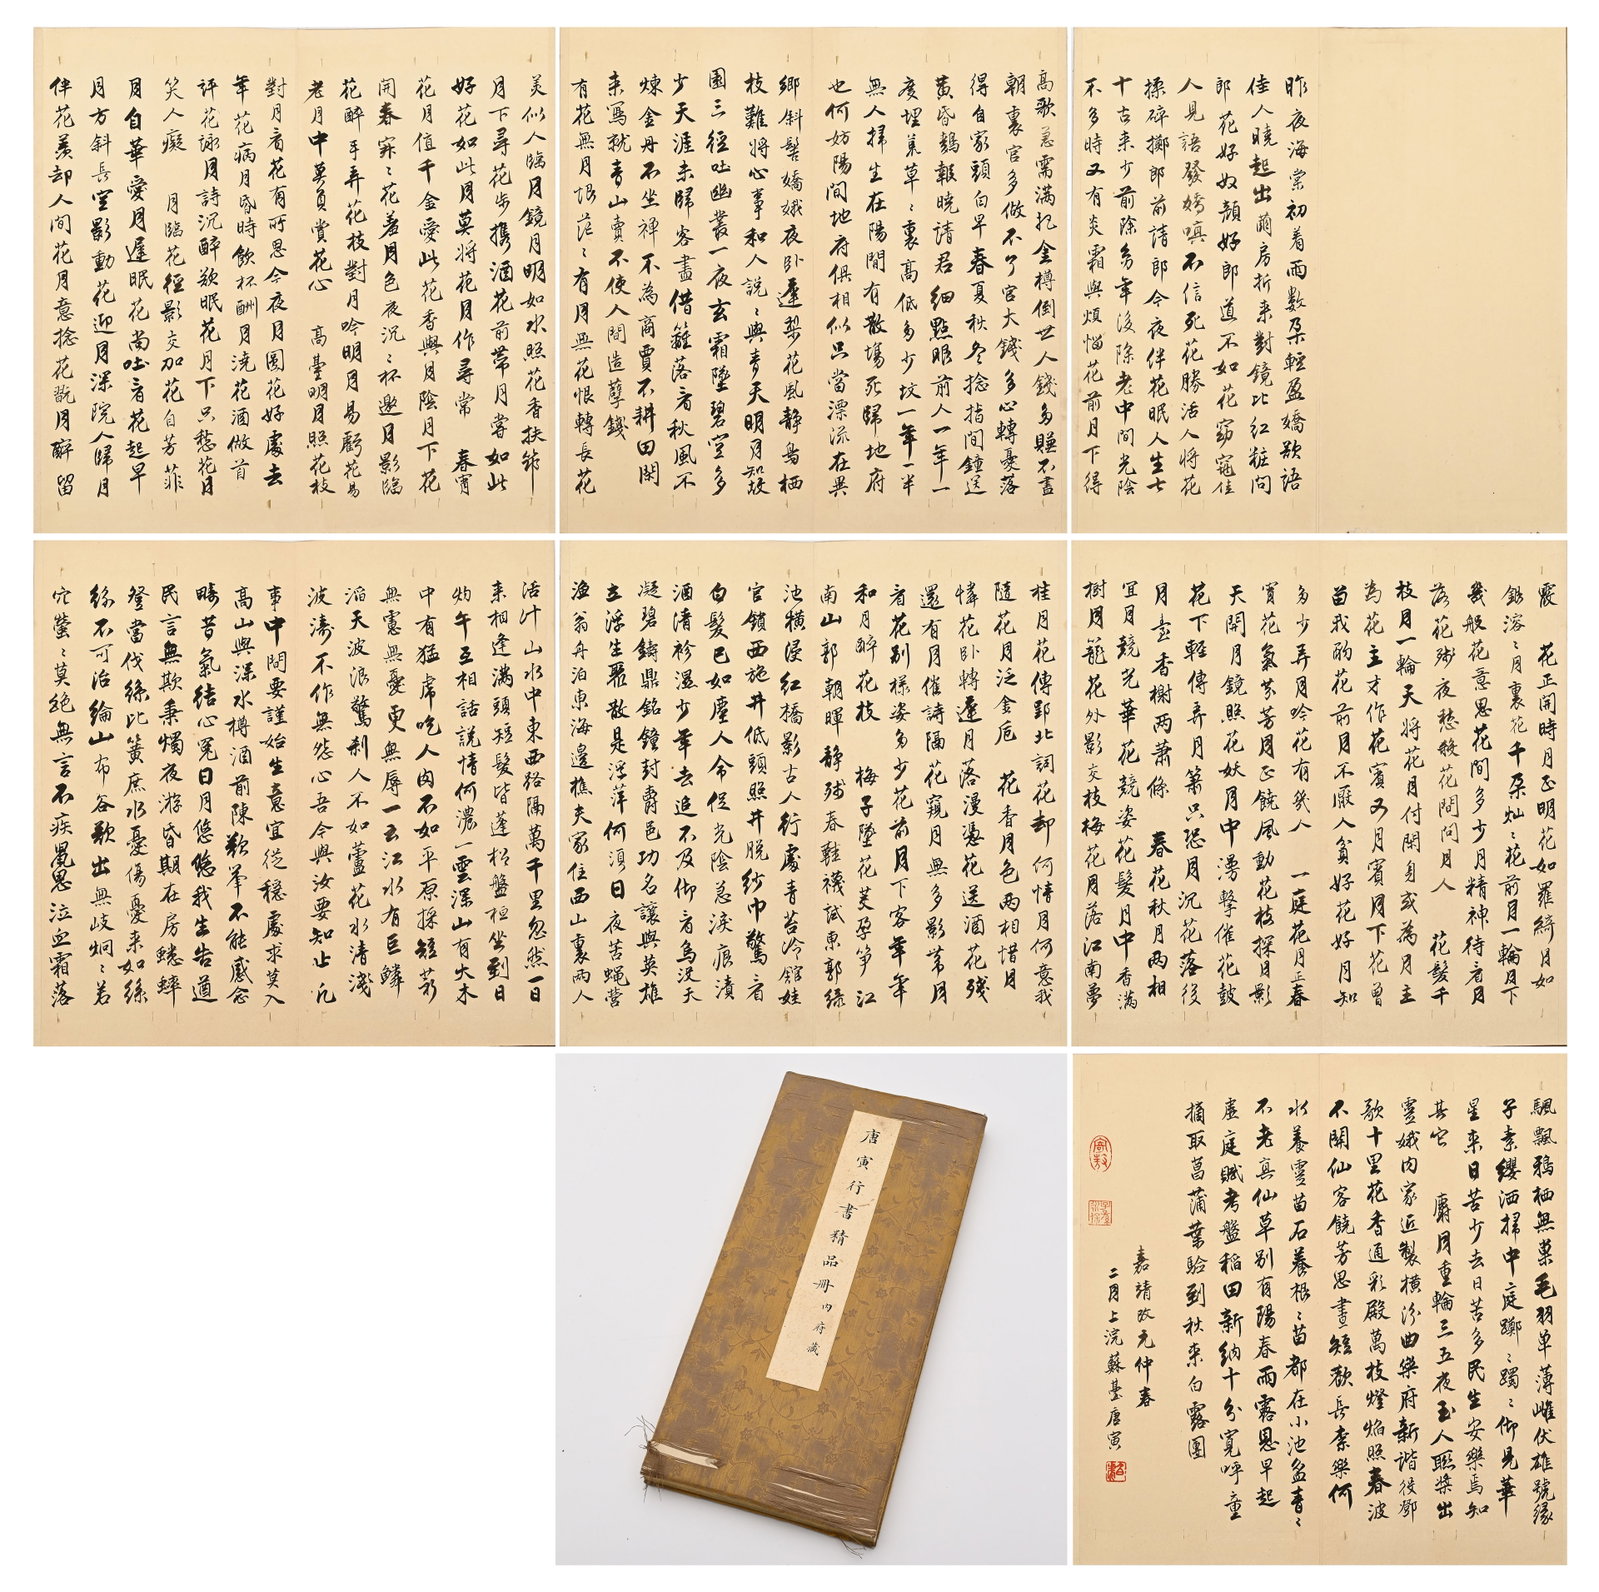 昨夜海棠初着雨數朵輕盈嬌欲語
佳人曉起出蘭房折來對鏡比紅粧問
郎花好奴顏好郎道不如花窈窕佳
人見語發嬌嗔不信死花勝活人將花
揉碎擲郎前請郎今夜伴花眠人生七
十古來少前除多年後除老中間光陰
不多時又有炎霜與煩惱花前月下得
高歌急需滿把金樽倒世人錢多賺不盡
朝裏官多做不了官大錢多心轉憂落
得自家頭白早春夏秋冬捻指間鐘送
黃昏鷄報曉請君細點眼前人一年一
度埋荒草〻裏高低多少坟一年一半
無人掃生在陽間有散場死歸地府
也何妨陽間地府俱相似只當漂流在異
鄉斜髻嬌娥夜卧遲梨花風静鳥栖
枝難將心事和人說〻與青天明月知故
園三徑吐幽叢一夜玄霜墜碧空多
少天涯未歸客盡借籬落看秋風不
煉金丹不坐禪不為商賈不耕田閑
來寫就青山賣不使人間造孽錢
有花無月恨茫〻有月無花恨轉長花
美似人臨月鏡月明如水照花香扶筇
月下尋花步携酒花前帶月嘗如此
好花如此月莫將花月作尋常 春宵
花月值千金愛此花香與月陰月下花
開春寂〻花羞月色夜沉〻杯邀月影臨
花醉手弄花枝對月吟明月易虧花易
老月中莫負賞花心 高臺明月照花枝
對月看花有所思今夜月圓花好處去
年花病月昏時飲杯酬月澆花酒做首
評花詠月詩沉醉欲眠花月下只愁花月
笑人癡 月臨花徑影交加花自芳菲
月自華愛月遲眠花尚吐看花起早
月方斜長空影動花迎月深院人歸月
伴花羨却人間花月意捻花翫月醉留
霞 花正開時月正明花如羅綺月如
銀溶〻月裏花千朵燦〻花前月一輪月下
幾般花意思花間多少月精神待看月
落花殘夜愁殺花間問月人 花發千
枝月一輪天將花月付閑身或為月主
為花主才作花賓又月賓月下花曾
留我酌花前月不厭人貧好花好月知
多少弄月吟花有幾人 一庭花月正春
宵花氣芬芳月正饒風動花枝探月影
天開月鏡照花妖月中漫擊催花鼓
花下輕傳弄月簫只恐月沉花落後
月臺香榭两蕭條 春花秋月两相
宜月競光華花競姿花發月中香滿
樹月籠花外影交枝梅花月落江南夢
桂月花傳郢北詞花却何情月何意我
隨花月泛金卮 花香月色两相惜月
憐花卧轉遲月落漫憑花送酒花殘
還有月催詩隔花窺月無多影帶月
看花别樣姿多少花前月下客年年
和月醉花枝 梅子墜花茭孕笋江
南山郭朝暉静殘春鞋襪試東郭緑
池横浸紅橋影古人行處青苔冷館娃
宫鎖西施井低頭照井脱紗巾驚看
白髮已如塵人命促光陰急淚痕漬
酒清衫濕少年去追不及仰看烏没天
凝碧鑄鼎銘鐘封爵邑功名讓與英雄
立浮生聚散是浮萍何須日夜苦蝇營
漁翁舟泊東海邊樵夫家住西山裏两人
活计山水中東西路隔萬千里忽然一日
來相逢滿頭短髮皆蓬鬆盤桓坐到日
灼午互相話說情何濃一雲深山有大木
中有猛虎吃人肉不如平原採短薪
無慮無憂更無辱一云江水有巨鱗
滔天波浪驚刹人不如蘆花水清淺
波濤不作無怨心吾今與汝要知止凡
事中間要謹始生意宜從穩處求莫入
高山與深水樽酒前陳欲筆不能感念
疇昔氣結心冤日月悠悠我生告遒
民言無欺秉燭夜游昏期在房蟋蟀
登堂伐絲比簧庶永憂傷憂來如絲
絲不可治綸山布谷歌出無岐炯〻若
穴螢〻莫絶無言不疾鼠思泣血霜落
飄飄鴉栖無菓毛羽单薄雌伏雄號緣
子素纓洒掃中庭躑〻躅〻仰見華
星來日苦少去日苦多民生安樂焉知
其它 麝月重輪三五夜玉人聯槳出
靈娥内家近製横汾曲樂府新諧役鄧
歌十里花香通彩殿萬枝燈焰照春波
不開仙客饒芳思晝短歡長奈樂何
水養靈苗石養根〻苗都在小池盆青〻
不老真仙草别有陽春雨露恩早起
虚庭賦考盤稻田新納十分寬呼童
摘取菖蒲葉驗到秋來白露團
嘉靖改元仲春
二月上浣蘇臺唐寅
唐寅行書精品册内府藏